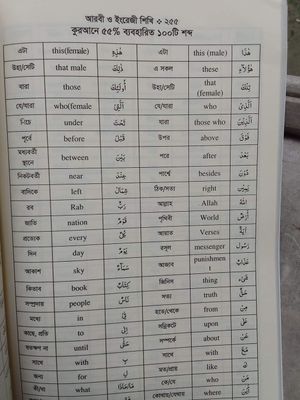 আরবী ও ইংরেজী শিখি ❖ ২৫৫
কুরআনে ৫৫% ব্যবহারিত ১০০টি শব্দ
এটা this(female) هٰذِهٖ এটা this (male) هٰذَا
উহা/সেটি that male ذٰلِكَ এ সকল these هٰٓؤُلَآءِ
যারা those أُولٰٓئِكَ উহা/সেটি that (female) تِلْكَ
যে/যারা who(female) الَّتِيْ যে/যারা who الَّذِيْ
নিচে under تَحْتَ যারা those who الَّذِيْنَ
পূর্বে before قَبْلَ উপর above فَوْقَ
মধ্যবর্তী স্থানে between بَيْنَ পরে after بَعْدَ
নিকটবর্তী near عِنْدَ পার্শ্বে besides دُوْنَ
বাদিকে left شِمَالٌ ঠিক/সত্য right يَمِيْنٌ
রব Rab رَبٌّ আল্লাহ Allah اَللّٰهُ
জাতি nation قَوْمٌ পৃথিবী World أَرْضٌ
প্রত্যেক every كُلٌّ আয়াত Verses آيَةٌ
দিন day يَوْمٌ রসূল messenger رَسُوْلٌ
আকাশ sky سَمَآءٌ আজাব punishment عَذَابٌ
কিতাব book كِتَابٌ জিনিস thing شَيْءٌ
সম্প্রদায় people نَاسٌ সত্য truth حَقٌّ
মধ্যে in فِيْ হতে/থেকে from مِنْ
কাছে, প্রতি to إِلٰى সন্নিকটে upon عَلٰى
যতক্ষণ না until حَتّٰى সম্পর্কে about عَنْ
সাথে with بِ সাথে with مَعَ
জন্য for لِ মত/প্রায় like كَ
কী/যা what مَا/مَاذَا কে/যে who مَنْ
কোথায়/যেখায় where أَيْنَ